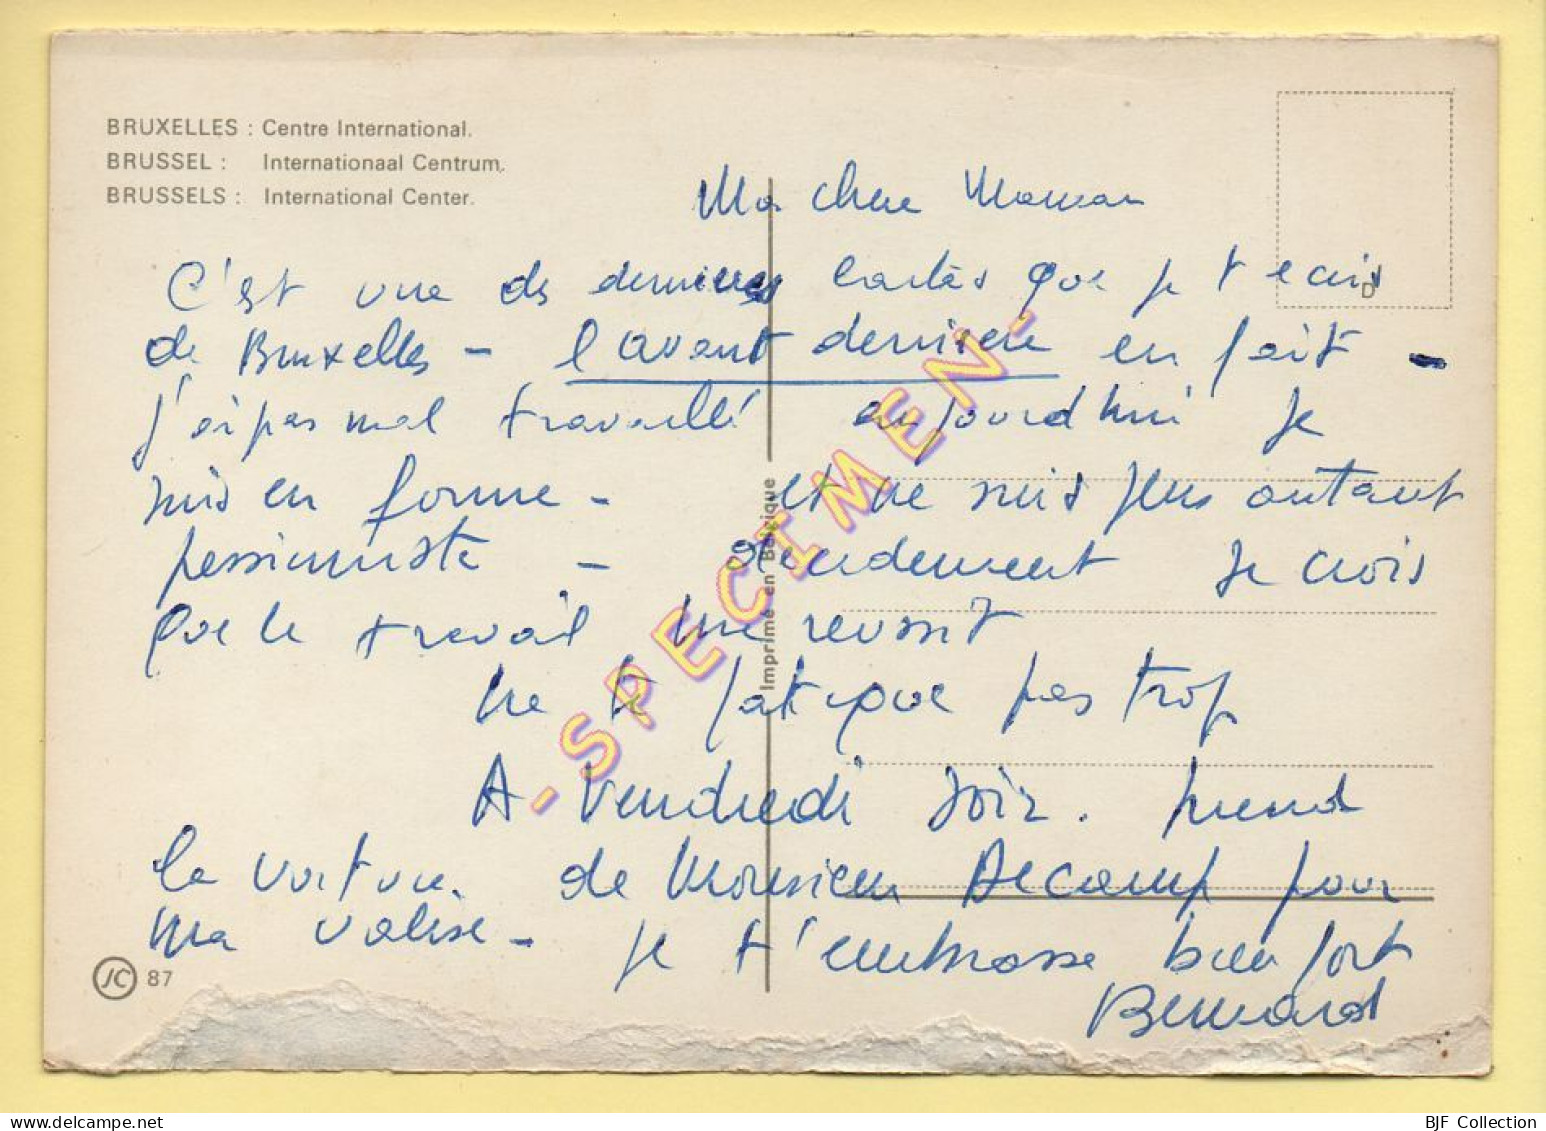 BRUXELLES : Centre International.
BRUSSEL : Internationaal Centrum.
BRUSSELS : International Center.
D
Ma chere Maman
C'est une des dernieres cartes que je t ecris
de Bruxelles - l'avant derniere en fait -
j'ai pas mal travaillé aujourd'hui je
suis en forme - et ne suis plus autant
pessimiste - Je crois
que le travail me reussit
ne te fatigue pas trop
A Vendredi soir. prend
la voiture de Monsieur Decamp pour
ma valise - je t'embrasse bien fort
Bernard
JC 87
Imprimé en Belgique
- SPECIMEN -
BJF Collection